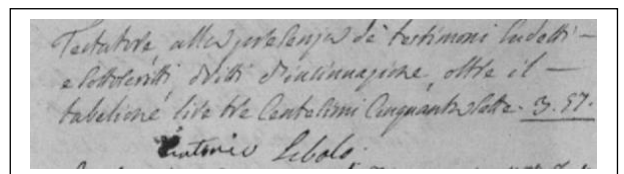 Testatore, alla presenza de testimoni sudetti –
e sottoscritti, dritti d'insinuazione, oltre il –
tabelione lire tre Centesimi Cinquantasette. 3.57.
Antonio Lebolo